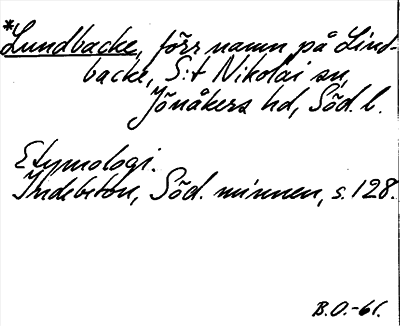 *Lundbacke, förr namn på Lind-
backe, S:t Nikolai sn,
Jönåkers hd, Söd. l.
Etymologi.
Indebetou, Söd. minnen, s. 128.
B.O.-61.